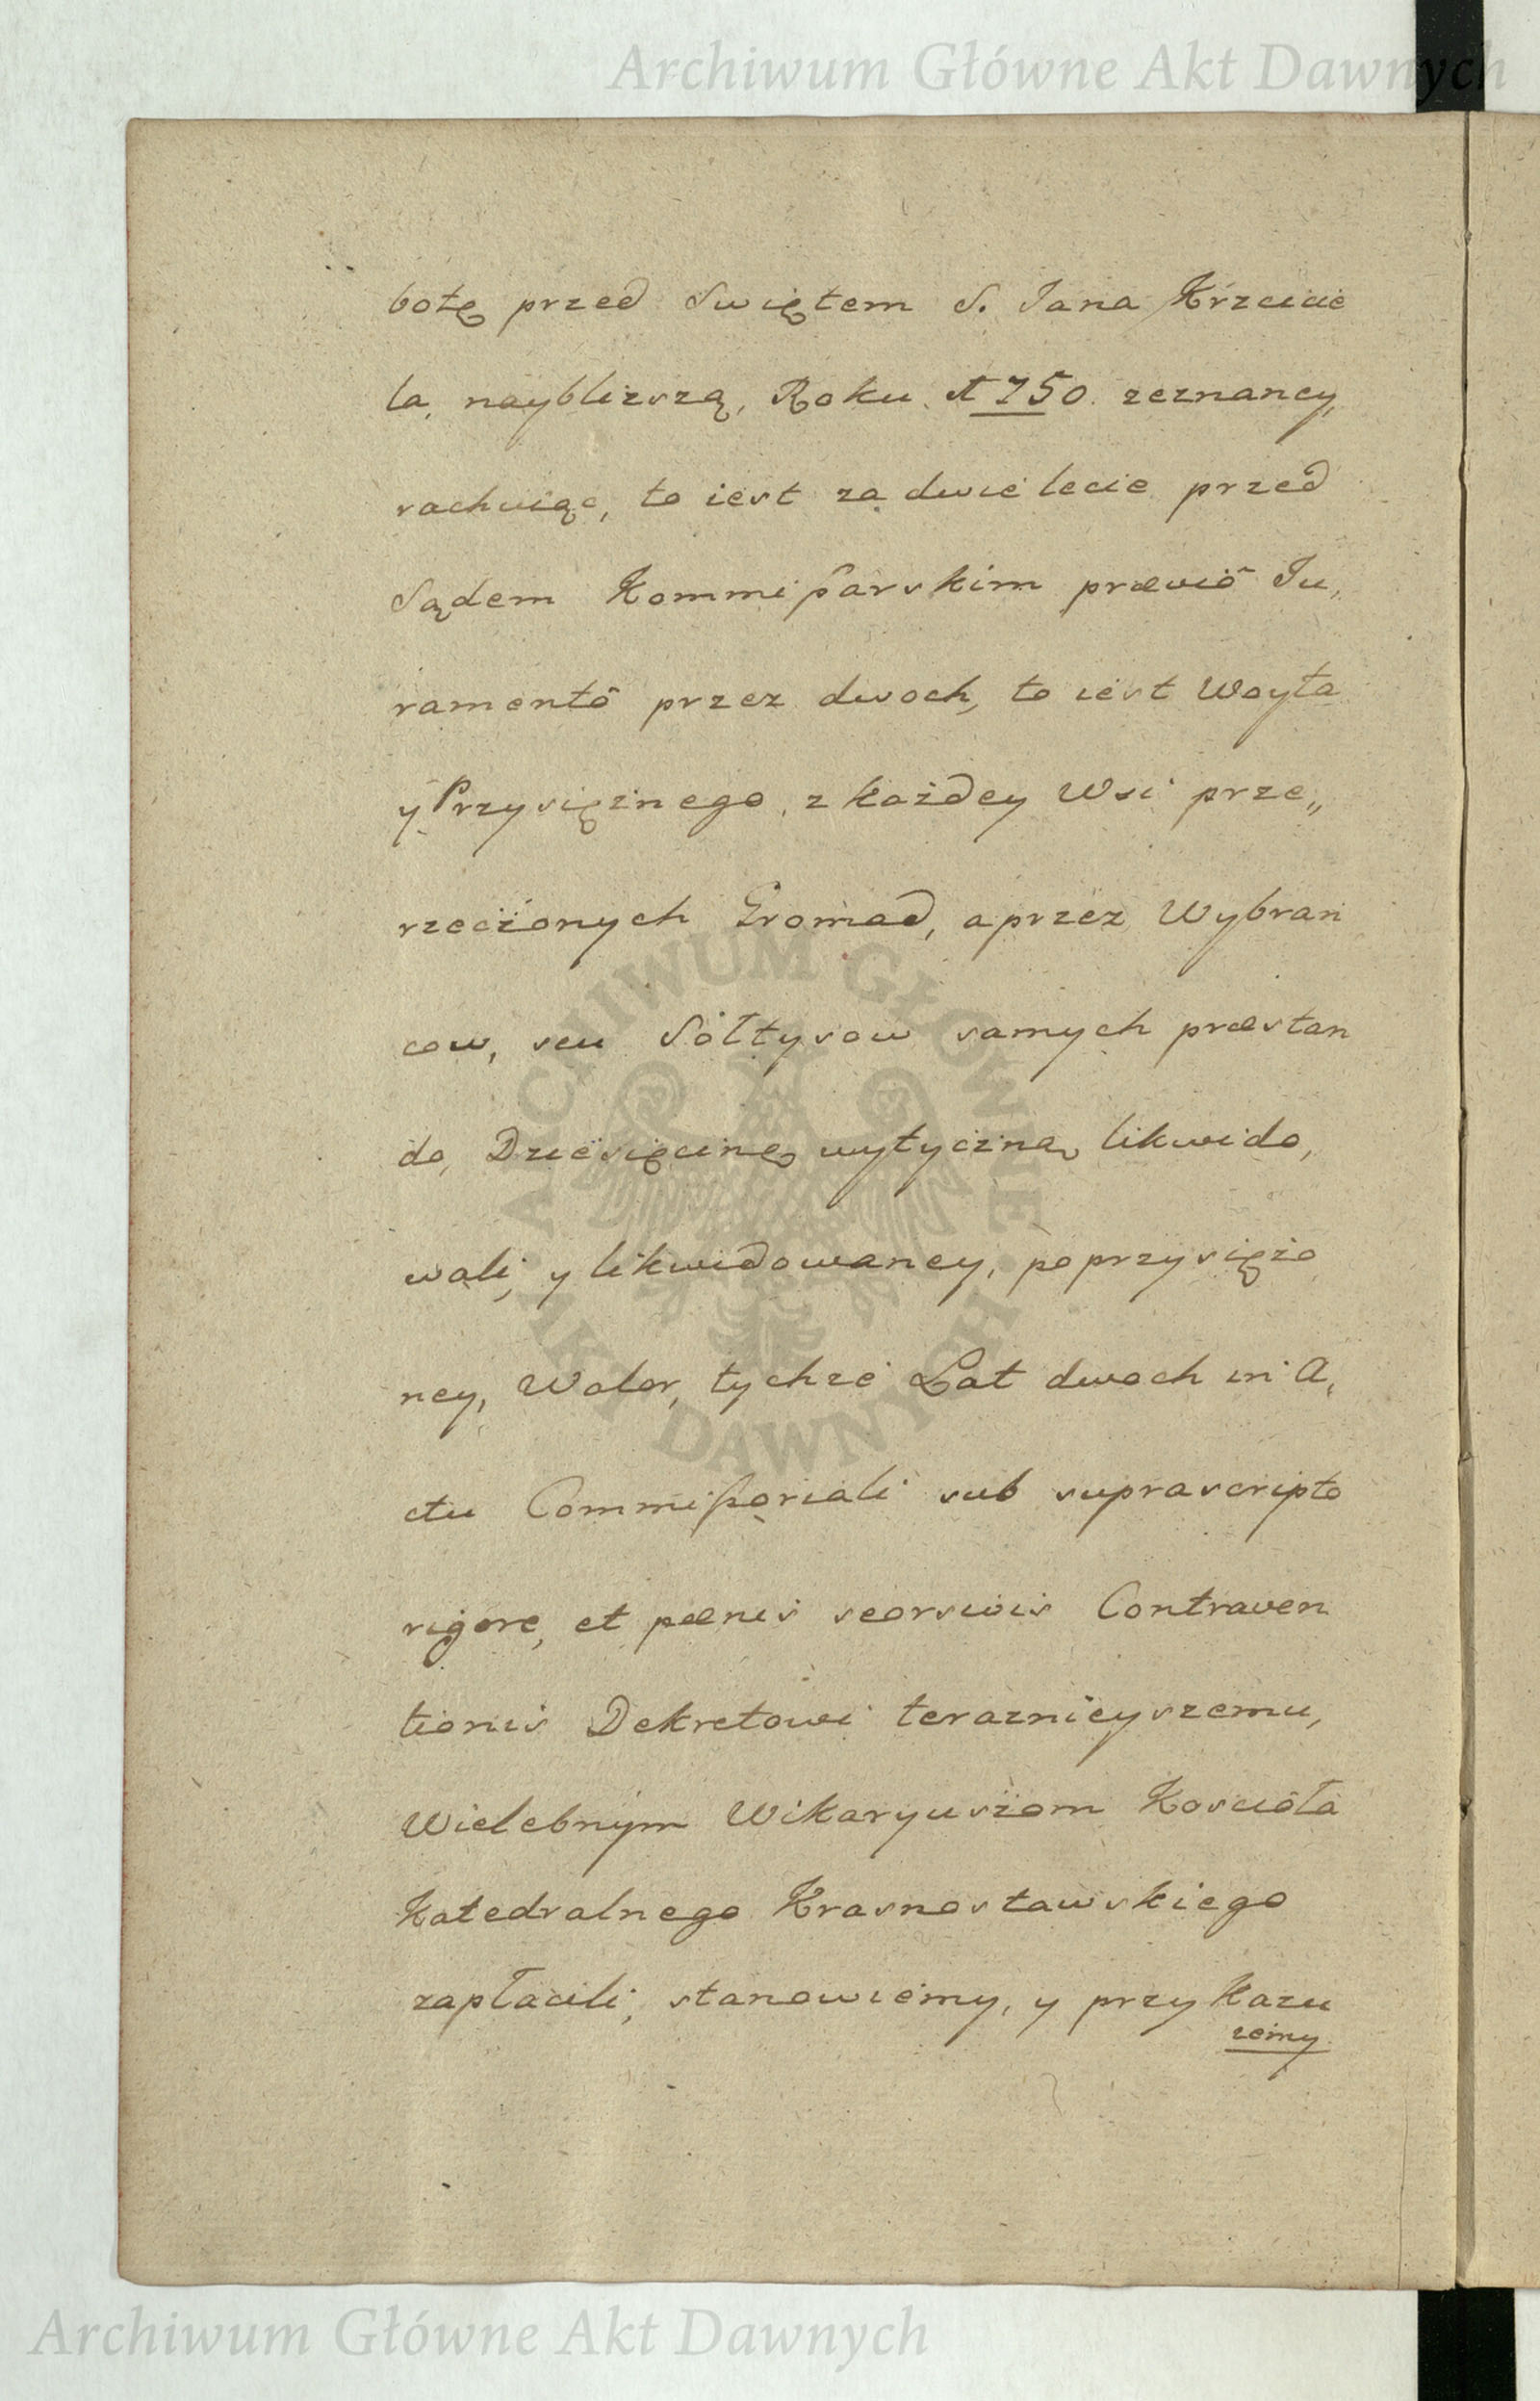 Archiwum Główne Akt Dawnych
botę przed Swiętem S. Jana Krzcicie
la, nayblizszą, Roku 1750. zeznaney,
rachuiąc, to iest za dwie lecie przed
Sądem Kommißarskim prævió Ju,
ramentó przez dwoch, to iest Woyta
y Przysiężnego, z każdey Wsi prze„
rzeczonych Gromad, a przez Wybran
cow, seu Sółtysow samych præstan
do, Dziesięcinę wytyczną likwido,
wali, y likwidowaney, poprzysiężo
ney, Walor, tychze Lat dwoch in A,
ctu Commißoriali sub suprascripto
rigore, et pænis seorsivis Contraven
tionis Dekretowi teraznieyszemu,
Wielebnym Wikaryuszom Koscioła
Katedralnego Krasnostawskiego
zapłacili, stanowiemy, y przykazu
zemy
ARCHIWUM GŁÓWNE
AKT DAWNYCH
Archiwum Główne Akt Dawnych